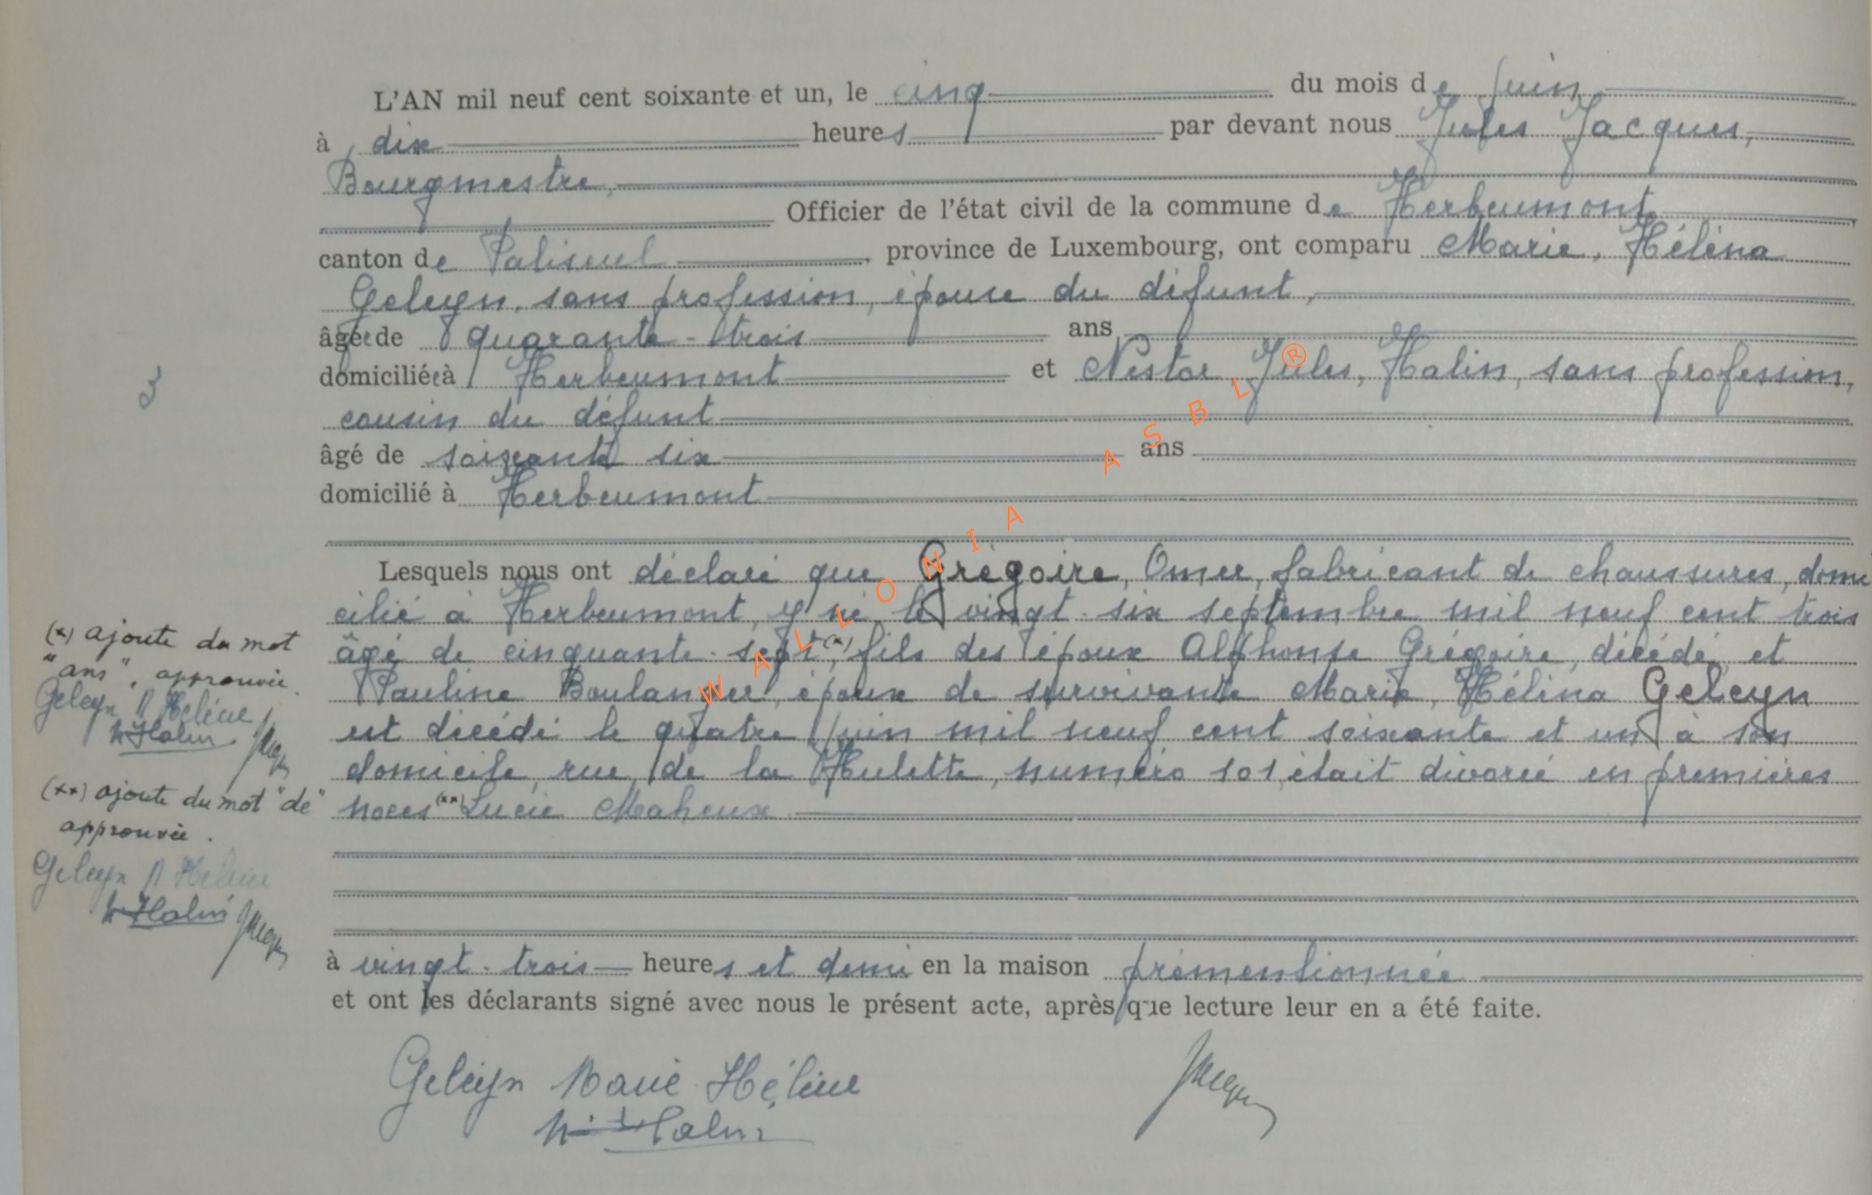 L'AN mil neuf cent soixante et un, le cinq du mois de juin
à dix heures par devant nous Jules Jacques,
Bourgmestre,
Officier de l'état civil de la commune de Herbeumont
canton de Paliseul, province de Luxembourg, ont comparu Marie, Héléna
Geleyn, sans profession, épouse du défunt,
âgée de quarante-trois ans
domiciliée à Herbeumont et Nestor, Jules, Halin, sans profession,
cousin du défunt
âgé de soixante six ans
domicilié à Herbeumont
Lesquels nous ont déclaré que Grégoire, Omer, fabricant de chaussures, domi
cilié à Herbeumont, y né le vingt-six septembre mil neuf cent trois
âgé de cinquante-sept (*), fils des époux Alphonse Grégoire, décédé, et
Pauline Boulanger, époux de survivante Marie, Héléna Geleyn
est décédé le quatre juin mil neuf cent soixante et un à son
domicile, rue de la Hulette, numéro 101, était divorcé en premières
noces (**) Lucie Maheux
à vingt-trois heures et demi en la maison prémentionnée
et ont les déclarants signé avec nous le présent acte, après que lecture leur en a été faite.
Geleyn Marie Hélène
N. Halin
Jacques
3
(*) ajoute du mot
"ans", approuvée.
Geleyn M Hélène
N Halin
Jacques
(**) ajoute du mot "de"
approuvée.
Geleyn M Hélène
N Halin
Jacques
WALLONIA ASBL ®